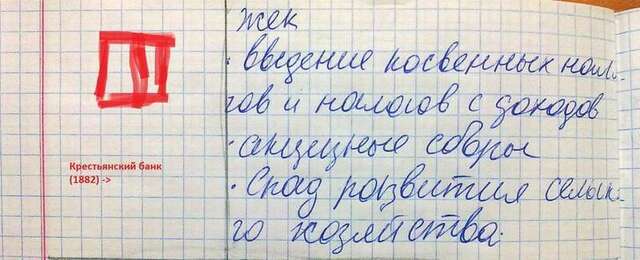 жек
· введение косвенных нало-
гов и налогов с доходов
· акцизные сборы
· Спад развития сельско-
го хозяйства.
Крестьянский банк
(1882) ->